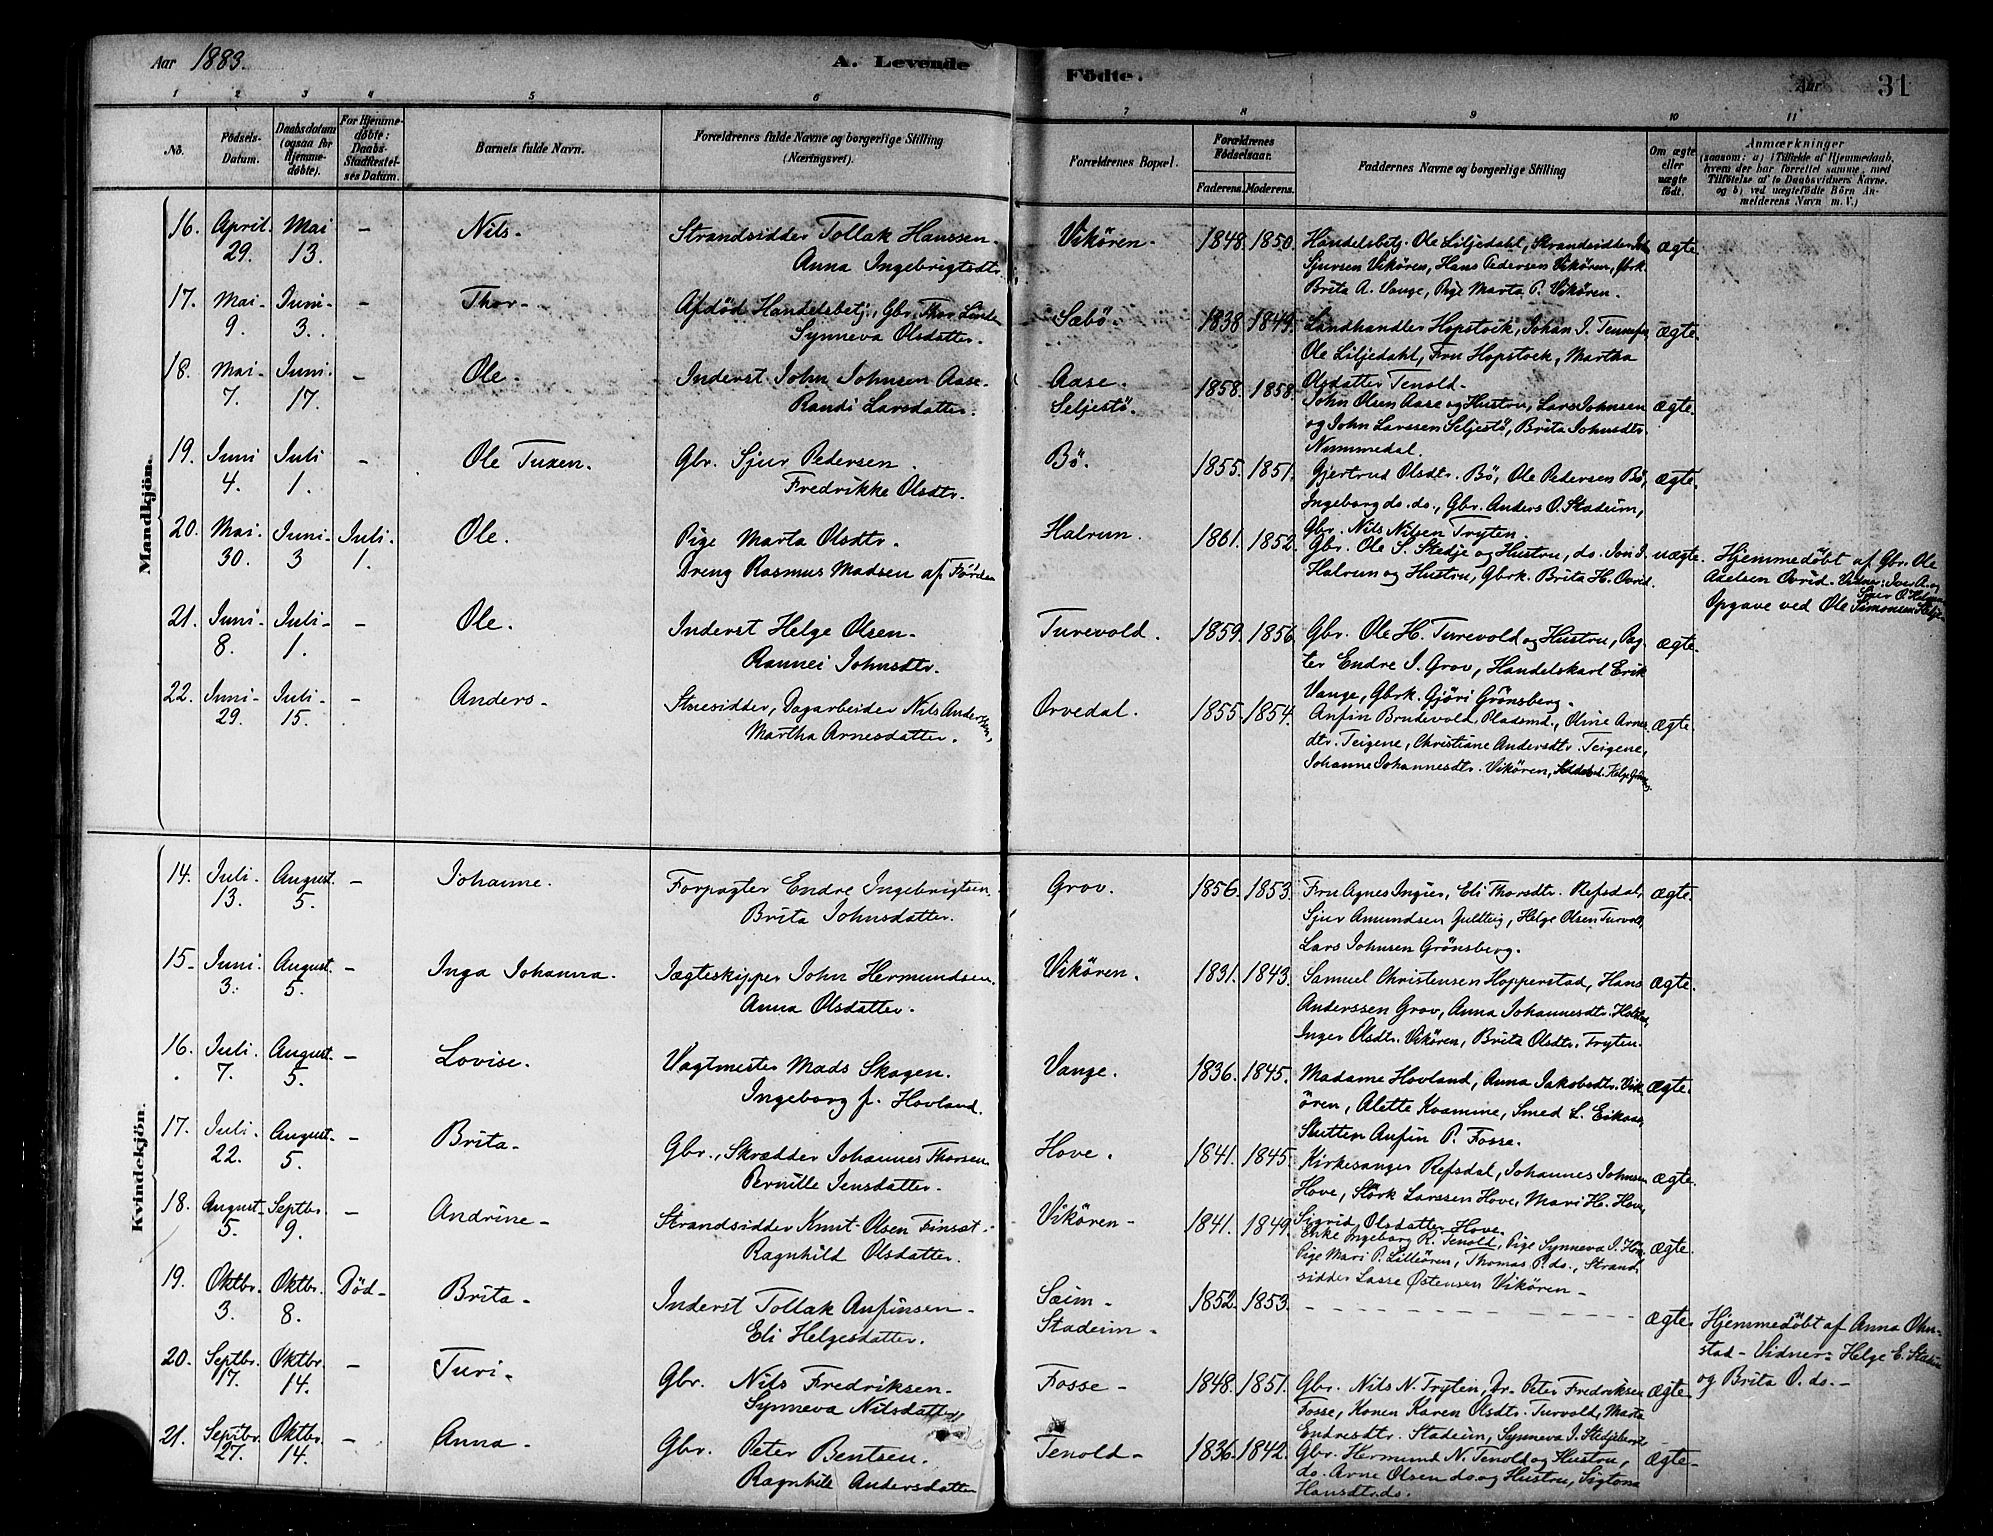 Aar 1883.
A. Levende Födte.
Aar 31
1 2 3 4 5 6 7 8 9 10 11
No.
Födsels-Datum.
Daabsdatum (ogsaa for Hjemme-döbte).
For Hjemme-döbte: Daabs-Stadfæstel-ses Datum.
Barnets fulde Navn.
Forældrenes fulde Navne og borgerlige Stilling (Næringsvei).
Forældrenes Bopæl.
Forældrenes Födselsaar.
Faderens. Moderens.
Faddernes Navne og borgerlige Stilling
Om ægte eller uægte födt.
Anmærkninger
(saasom: a) i Tilfælde af Hjemmedaab, hvem der har forrettet samme, med Tilföielse af to Daabsvidners Navne, og b) ved uægtefödte Börn An-melderens Navn m. V.)
Mandkjön.
16. April 29. Mai 13. - Nils - Strandsidder Tollak Hanssen - Vikören - 1848. 1850. Handelsbetj. Ole Liljedahl, Strandsidder ægte
Anna Ingebrigtsdtr. Sjursen Vikören, Hans Pedersen Vikören, Gbrk.
Brita A. Vange, Pige Marta P. Vikören.
17. Mai 9. Juni 3. - Thor - Afdöd Handelsbetj., Gbr. Thor Sæbö. 1838 1849. Landhandler Hopstock, Johan I. ægte.
Synneva Olsdatter. Ole Liljedahl, Fru Hopstock, Martha
Olsdatter Tenold -
18. Mai 7. Juni 17. - Ole. Inderst John Johnsen Aase. Aase. 1858. 1858. John Olsen Aase og Hustru, Lars Johnsen ægte.
Randi Larsdatter. Seljestö. og John Larssen Seljestö, Brita Johnsdtr.
Nummedal.
19. Juni 4. Juli 1. - Ole Tuxen. Gbr. Sjur Pedersen. Bö. 1855. 1851. Gjertrud Olsdtr. Bö, Ole Pedersen Bö, ægte.
Fredrikke Olsdtr. Ingeborg do. do., Gbr. Anders O. Stadeim,
Gbr. Nils Nilsen Tryten.
20. Mai 30. Juni 3 Juli 1. Ole. Pige Marta Olsdtr. Halrum. 1861. 1852. Gbr. Ole S. Stedje og Hustru, do. Jon I. uægte. Hjemmedöbt af Gbr. Ole
Dreng Rasmus Madsen af Förde Halrum og Hustru, Gbrk. Brita H. Ovrid. Axelsen Ovrid - Vidner: Iver A. og
Opgave ved Ole Simonsen
21. Juni 8. Juli 1. - Ole. Inderst Helge Olsen. Turevold. 1859. 1856 Gbr. Ole H. Turevold og Hustru, Pag- ægte.
Rannei Johnsdtr. ter Endre I. Grov, Handelskarl Erik
Vange, Gbrk. Gjöri Grönsberg.
22. Juni 29. Juli 15. - Anders - Stuesidder, Dagarbeider Nils Anderssen, Orvedal. 1855. 1854. Anfin Brudevold Pladsmd., Oline Arnes- ægte.
Martha Arnesdatter. dtr. Teigene, Christiane Andersdtr. Teigene,
Johanne Johannesdtr. Vikören,
Kvindekjön.
14. Juli 13. August 5. - Johanne. Forpagter Endre Ingebrigtsen. Grov. 1856. 1853. Fru Agnes Ingier, Eli Thorsdtr. Refsdal, ægte.
Brita Johnsdatter. Sjur Amundsen Gullteig, Helge Olsen Turvold,
Lars Johnsen Grönsberg.
15. Juni 3. August 5. - Inga Johanna. Jægteskipper John Hermundsen. Vikören. 1831. 1843. Samuel Christensen Hopperstad, Hans ægte.
Anna Olsdatter. Anderssen Grov, Anna Johannesdtr.
Inger Olsdtr. Vikören, Brita Olsdtr. Tryten.
16. Juli 7. August 5. - Lovise. Vagtmester Mads Skagen. Vange. 1836. 1845. Madame Hovland, Anna Jakobsdtr. Vik- ægte
Ingeborg f. Hovland. ören, Alette Kvamme, Smed L.
Anfin P. Fosse.
17. Juli 22. August 5. - Brita - Gbr., Skrædder Johannes Thorsen. Hove. 1841. 1845. Kirkesanger Refsdal, Johannes Johnsen ægte.
Pernille Jensdatter. Hove, Störk Larssen Hove, Mari H. Hove,
Sigrid Olsdatter Hove.
18. August 5. Septbr. 9. - Andrine - Strandsidder Knut Olsen Finsæt. Vikören - 1841. 1849. Enke Ingeborg R. Tenold, Pige Synneva ægte.
Ragnhild Olsdatter. Pige Mari P. Lilleören, Thomas P. do., Strand-
sidder Lasse Østensen Vikören -
19. Oktbr. 3. Oktbr. 8. Död - Brita - Inderst Tollak Anfinsen - Sæim - 1852. 1853. ægte Hjemmedöbt af Anna
Eli Helgesdatter. Stadeim - stad - Vidner: Helge E.
og Brita O. do. -
20. Septbr. 17. Oktbr. 14. - Turi - Gbr. Nils Fredriksen - Fosse - 1848. 1851. Gbr. Nils N. Tryten, Dr. Peter Fredriksen ægte
Synneva Nilsdatter Fosse, Konen Karen Olsdtr. Turvold, Marta
Endresdtr. Stadeim, Synneva I.
21. Septbr. 27. Oktbr. 14. - Anna - Gbr. Peter Bentsen. Tenold - 1836. 1842. Gbr. Hermund N. Tenold og Hustru, ægte -
Ragnhild Andersdatter do. Arne Olsen do. og Hustru,
Hansdtr. do.